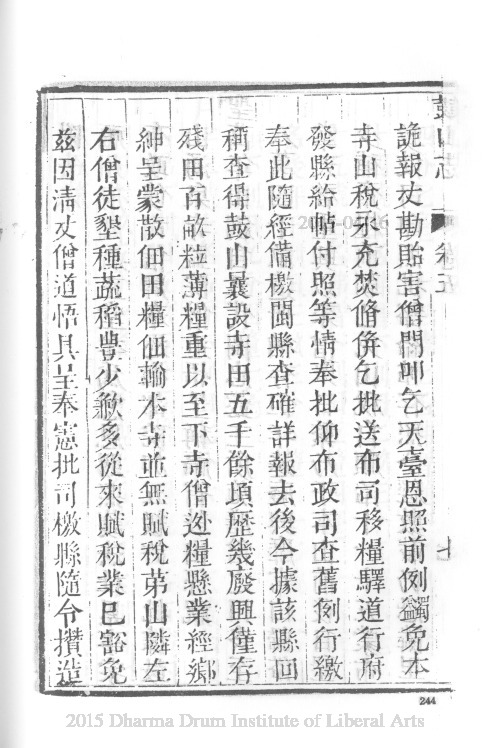 詭報丈勘貽害僧門叩乞天臺恩照前例蠲免本
寺山稅永充焚脩併乞批送布司移糧驛道行府
發縣給帖付照等情奉批仰布政司查舊例行繳
奉此隨經備檄閩縣查確詳報去後今據該縣回
稱查得鼓山曩設寺田五千餘頃歷幾廢興僅存
殘田百畝粒薄糧重以至下寺僧逃糧懸業經鄉
紳呈蒙散佃田糧佃輸本寺並無賦稅苐山隣左
右僧徒墾種蔬稻豊少歉多從來賦稅業已豁免
茲因清丈僧道悟具呈奉憲批司檄縣隨令攢造
鼓山志
卷五
七
244
2015 Dharma Drum Institute of Liberal Arts